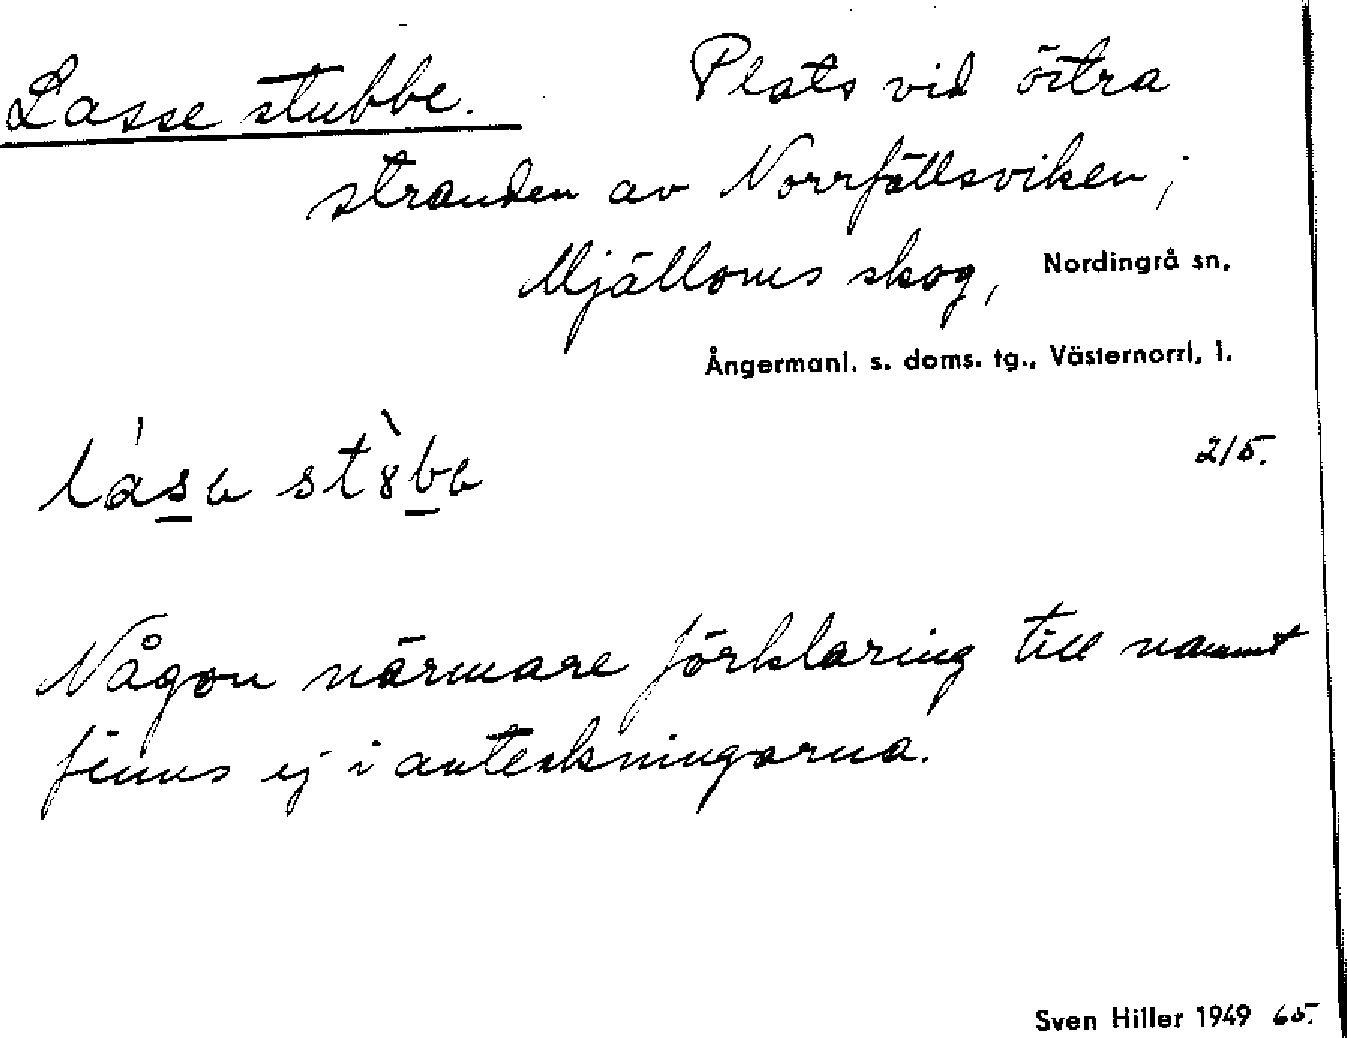 Lasse stubbe. Plats vid östra
stranden av Norrfällsviken;
Mjälloms skog, Nordingrå sn,
Ångermanl. s. doms. tg., Västernorrl. l.
2/5.
Någon närmare förklaring till namnet
finns ej i anteckningarna.
Sven Hiller 1949 65.